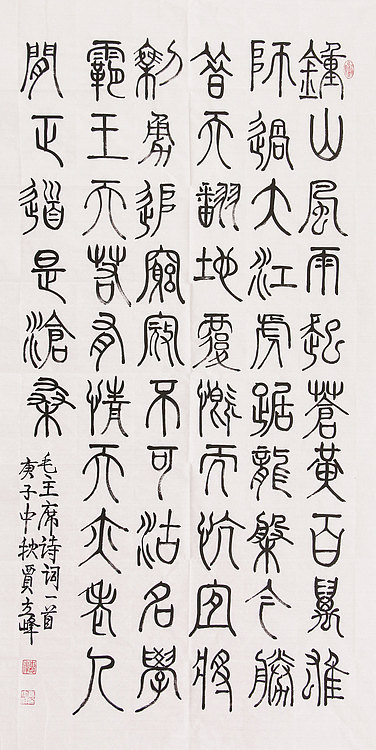 鍾山風雨起蒼黃百萬雄
師過大江虎踞龍槃今勝
昔天翻地覆慨而慷宜將
剩勇追窮寇不可沽名學
霸王天若有情天亦老人
間正道是滄桑
毛主席詩詞一首
庚子中秋賈立峰